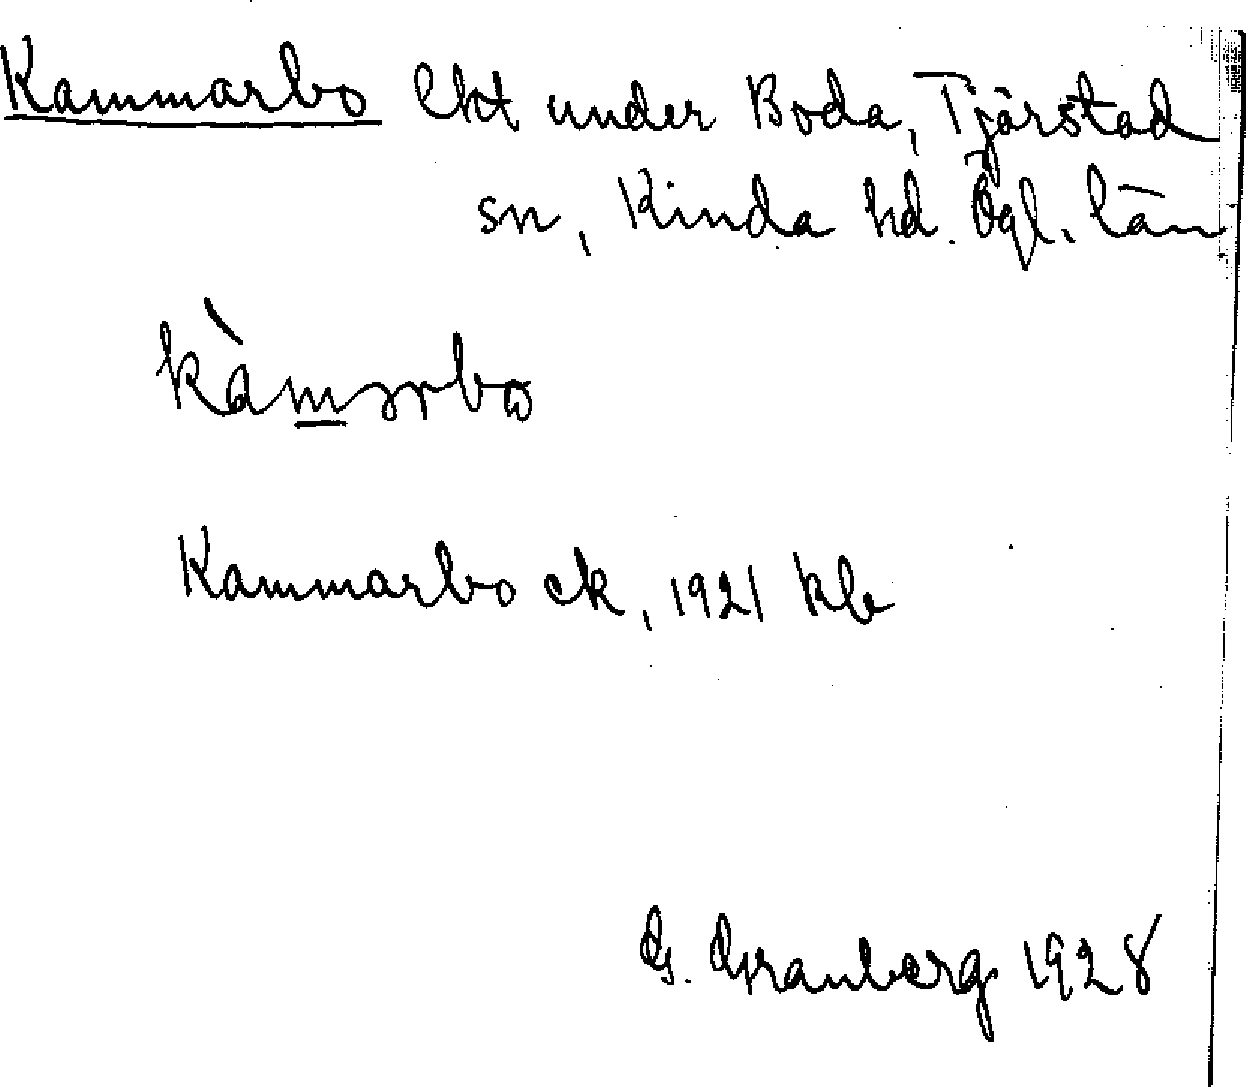 Kammarbo lht under Boda, Tjärstad
sn, Kinda hd. Ögl. län
kàmarbo
Kammarbo ck, 1921 kb
G. Granberg 1928